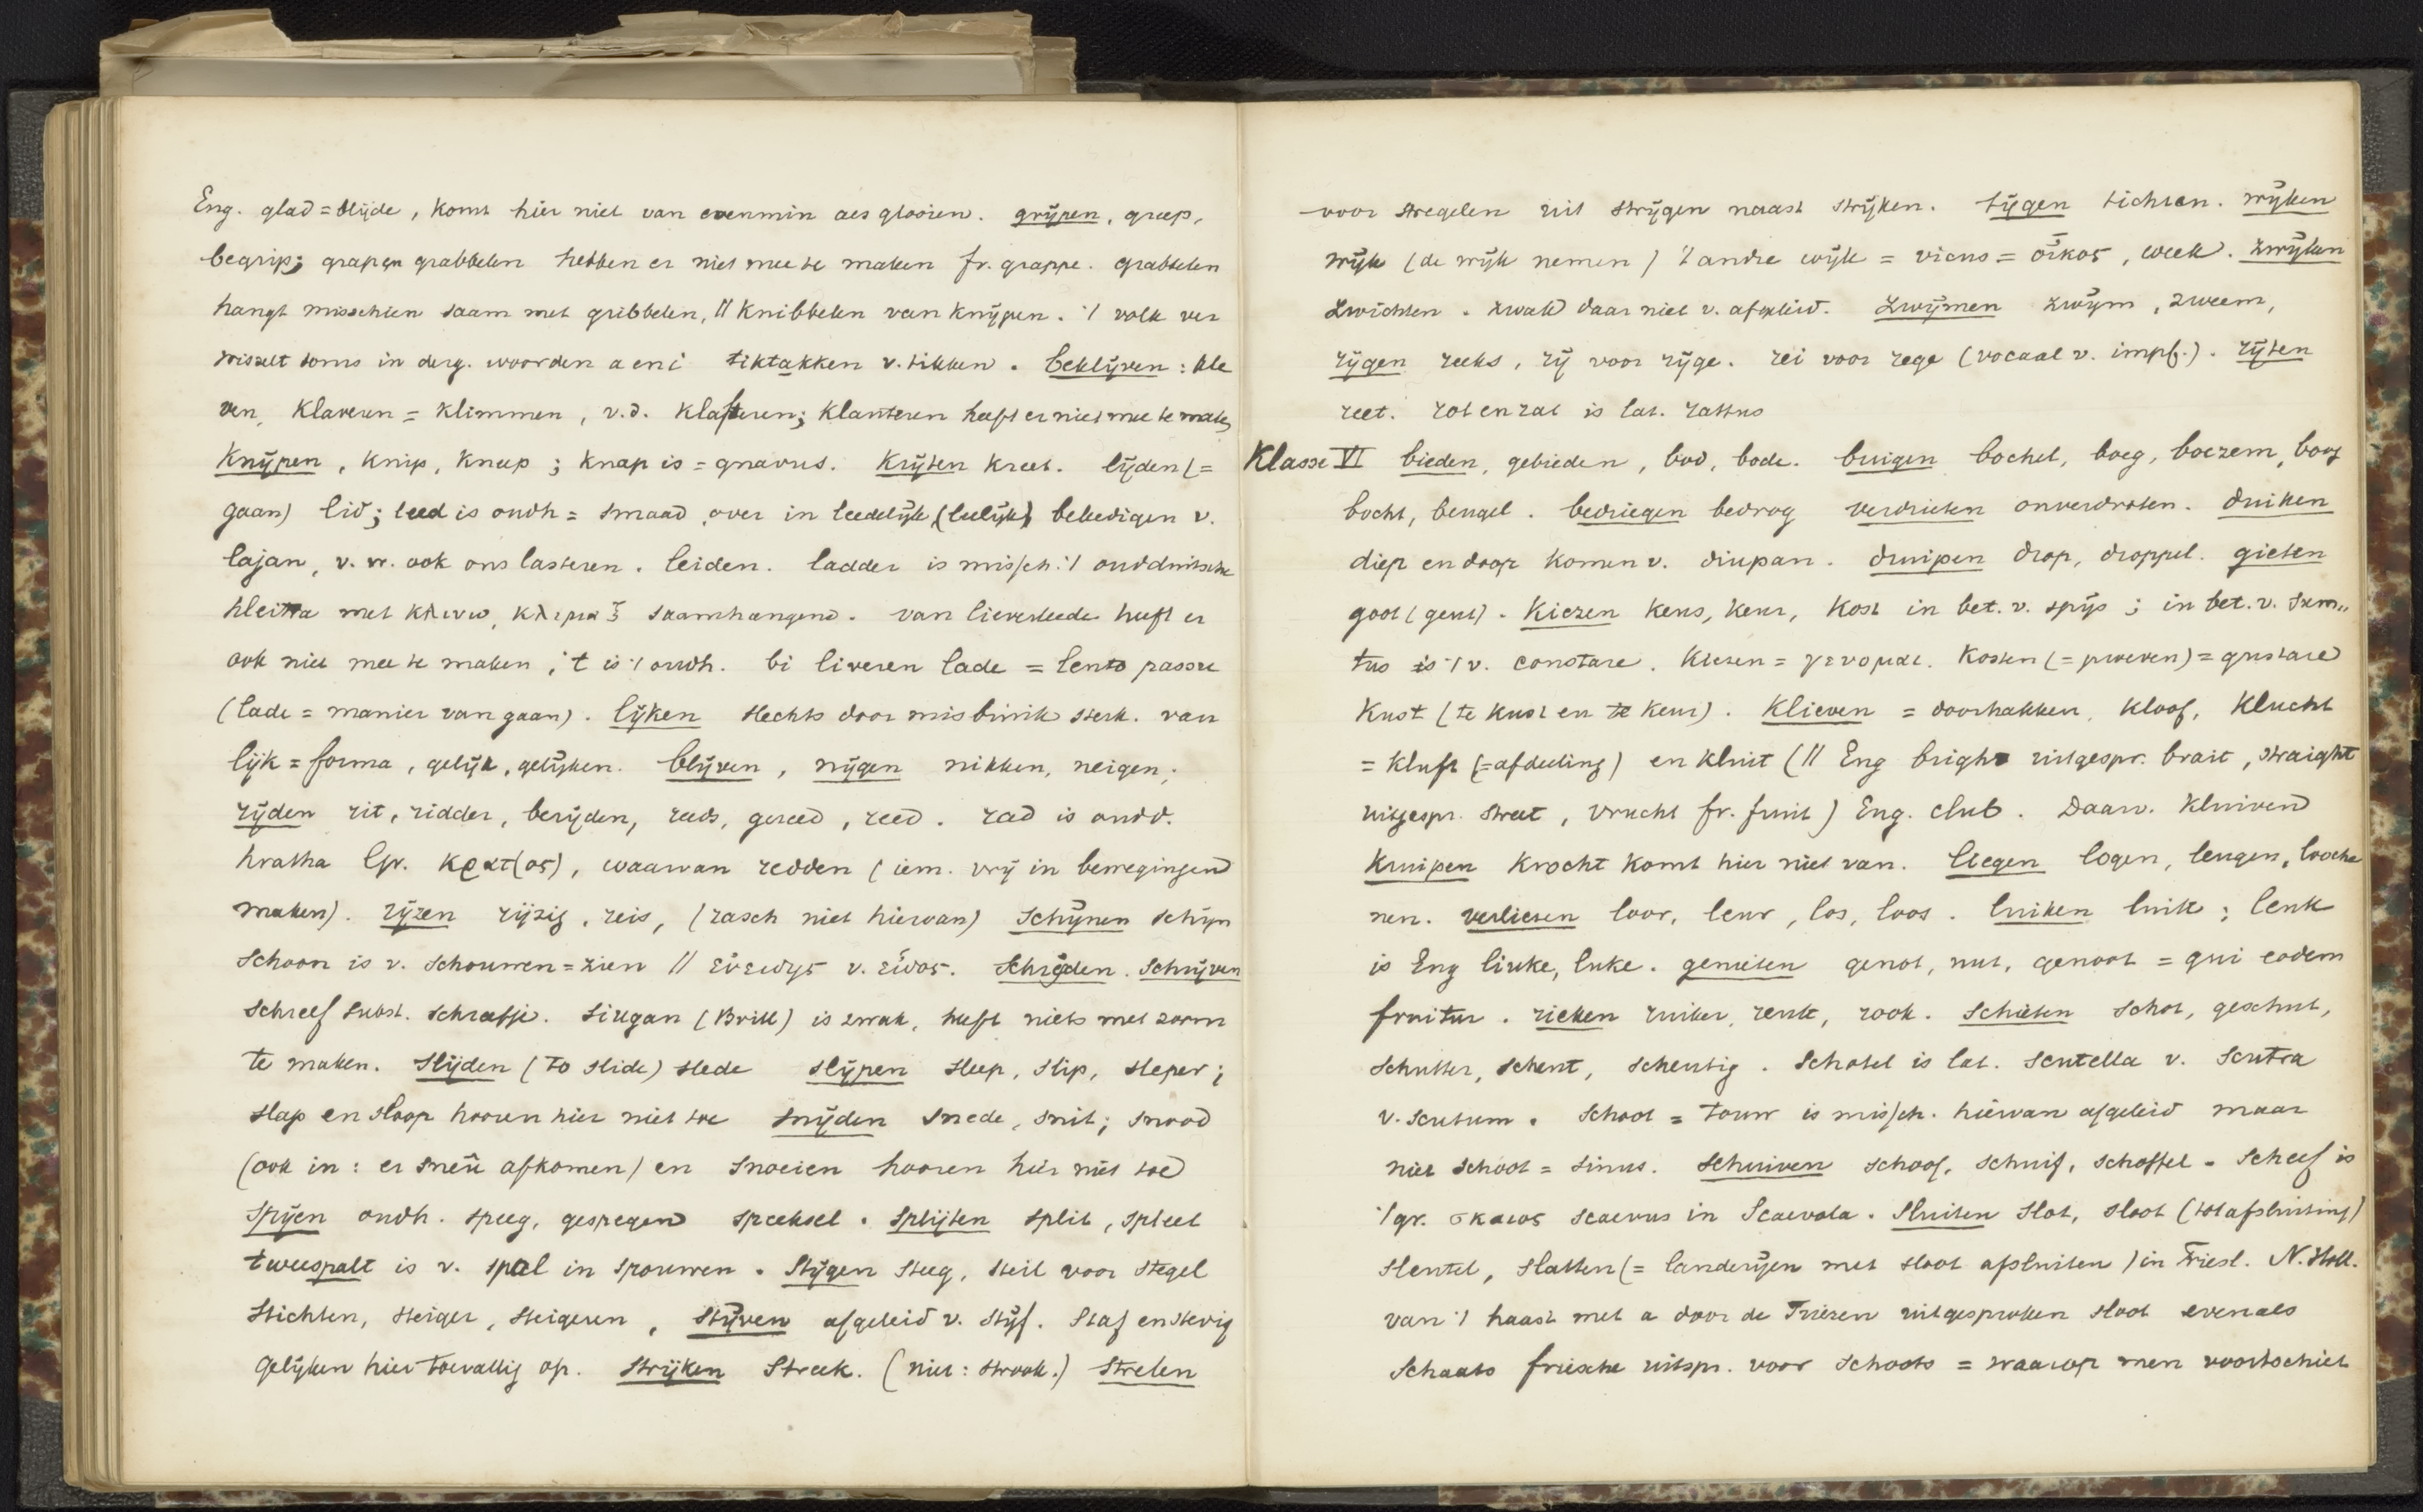 Eng. glad = blijde, komt hier niet van evenmin als glooien. grijpen, greep,
begrip; grapen grabbelen hebben er niet mee te maken fr. grappe. grabbelen
hangt misschien saam met gribbelen, // knibbelen van knijpen. 't volk ver
wisselt soms in derg. woorden a en i tiktakken v. tikken. beklijven: kle
ven, klaveren = klimmen, v.d. klafteren; klanteren heeft er niet mee te maken
knijpen, knip, kneep; knap is = gnavus. krijten kreet. lijden (=
gaan) lid; leed is oudh = smaad, over in leedelijk (leelijk) beleedigen v.
lajan, v. w. ook ons lasteren. leiden. ladder is missch. 't oudduitsche
hleitra met κλινω, κλιμαξ saamhangend. van lieverleede heeft er
ook niet mee te maken; 't is 't oudh. bi liveren lade = lento passu
(lade = manier van gaan). lijken slechts door misbruik sterk. van
lijk = forma, gelijk, gelijken. blijven, nijgen nikken, neigen;
rijden rit, ridder, berijden, reeds, gereed, reed. rad is oudd.
hratha (gr. κρατ(ος), waarvan redden (iem. vrij in bewegingen
maken). rijzen rijzig, reis, (rasch niet hiervan) schijnen schijn
schoon is v. schouwen = zien // εὐειδης v. εἶδος. Schrijden. Schrijven
schreef subst. schraffie. Siugan (Brill) is zwak, heeft niets met zorm
te maken. Slijden (to slide) slede slijpen sleep, slip, sleper;
slap en sloop hooren hier niet toe snijden snede, snit; snood
(ook in: er sneû afkomen) en snoeien hooren hier niet toe
Spijen oudh. speeg, gespegen speeksel. Splijten split, spleet
tweespalt is v. spal in spouwen. Stijgen steeg, steil voor stegel
stichten, steiger, steigeren, stijven afgeleid v. stijf. Staf en stevig
gelijken hier toevallig op. strijken streek. (niet: strook.) strelen
voor stregelen uit strijgen naast strijken. tijgen tichten. wijken
wijk (de wijk nemen) 't andre wijk = vicus = οἶκος, week. zwijken
zwichten. zwak daar niet v. afgeleid. zwijmen zwijm, zweem,
rijgen reeks, rij voor rijge. rei voor rege (vocaal v. impf.). rijten
reet. rot en rat is lat. rattus
Klasse VI bieden, gebieden, bod, bode. buigen bochel, boeg, boezem, boog
bocht, beugel. bedriegen bedrog verdrieten onverdroten. duiken
diep en doop komen v. diupan. druipen drop, droppel. gieten
goot (geut). kiezen keus, keur, kost in bet. v. spijs; in bet. v. sum„
tus is 't v. constare. kiezen = γευομαι. kosten (= proeven) = gustare
kust (te kust en te keur). klieven = doorhakken, kloof, klucht
= kluft (= afdeeling) en kluit (// Eng bright uitgespr. brait, straight
uitgespr. street, vrucht fr. fruit) Eng. club. Daarv. kluiven
kruipen krocht komt hier niet van. liegen logen, leugen, looche
nen. verliezen loor, leur, los, loos. luiken luik; leuk
is Eng liuke, luke. genieten genot, nut, genoot = qui eodem
fruitur. rieken ruiker, reuk, rook. schieten schot, geschut,
schutter, scheut, scheutig. Schotel is lat. scutella v. scutra
v. scutum. Schoot = touw is missch. hiervan afgeleid maar
niet schoot = sinus. schuiven schoof, schuif, schoffel. Scheef is
't gr. σκαιος scaevus in Scaevola. Sluiten slot, sloot (tot afsluiting)
sleutel, slatten (= landerijen met sloot afsluiten) in Friesl. N. Holl.
van 't haast met a door de Friezen uitgesproken sloot evenals
schaats friesche uitspr. voor schoots = waarop men voortschiet